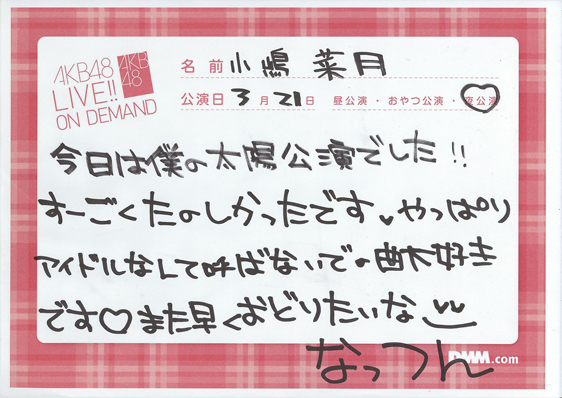 AKB48
LIVE!!
ON DEMAND
AKB
48
名前 小嶋菜月
公演日 3月21日 昼公演・おやつ公演・夜公演
今日は僕の太陽公演でした!!
すーごくたのしかったです♥やっぱり
アイドルなんて呼ばないでの曲大好き
です♡また早くおどりたいな
なっつん
DMM.com